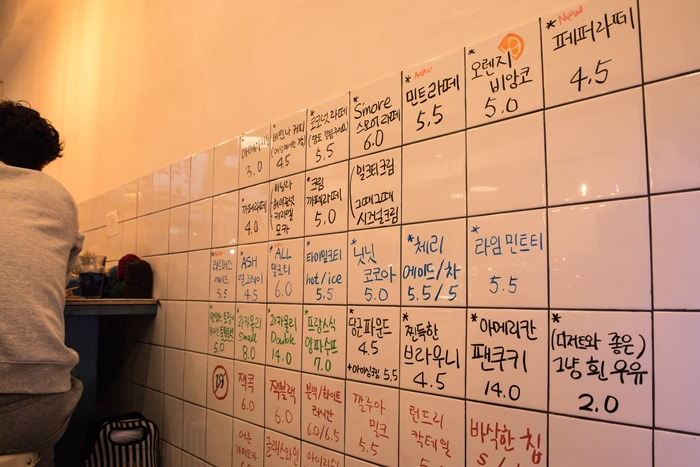 아메리카노
3.0
*바나나 커피
4.5
*코코넛라떼
5.5
*S'more
스모어라떼
6.0
*New
민트라떼
5.5
*오렌지
비앙코
5.0
*New
페퍼라떼
4.5
까페라떼
4.0
바닐라
헤이즐넛
카라멜
모카
*크림
까페라떼
5.0
(밀크티크림
그때그때
시건설크림
5.5
ASH
얼그레이
4.5
*ALL
밀크티
6.0
*타이밀크티
hot/ice
5.5
*넛닛
코코아
5.0
*체리
에이드/차
5.5/5
*라임민트티
5.5
5.0
과카몰리
Small
8.0
과카몰리
Double
14.0
*프랑스식
양파스프
7.0
*당근파운드
4.5
+아이싱크림 5.5
*찐득한
브라우니
4.5
*아메리칸
팬쿠키
14.0
*(디저트와 좋은)
그냥 흰 우유
2.0
19
잭콕
6.0
잭블랙
6.0
블랙/화이트
러시안
6.0/6.5
깔루아
밀크
5.5
런드리
칵테일
5.5
*바삭한 칩
글래스와인
아이리쉬